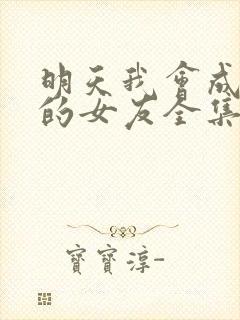 明天我會成
的女友全集
寶寶淳-